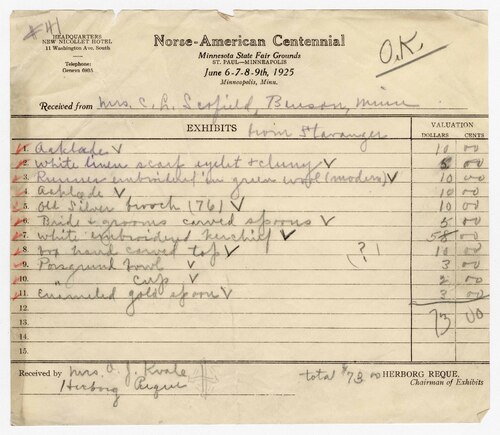 #141
HEADQUARTERS
NEW NICOLLET HOTEL
11 Washington Ave. South
Telephone:
Geneva 6805
Norse-American Centennial
Minnesota State Fair Grounds
ST. PAUL—MINNEAPOLIS
June 6-7-8-9th, 1925
Minneapolis, Minn.
O.K.
Received from Mrs. C. L. Scofield, Benson, Minn
EXHIBITS from Stavanger
VALUATION
DOLLARS CENTS
1. Aaklade √ 10 00
2. White linen scarf eyelet + cluny √ 5 00
3. Runner embroidered in green wool (modern) √ 10 00
4. Aaklade √ 10 00
5. Old Silver brooch (76) √ 10 00
6. Bride + grooms carved spoons √ 5 00
7. White embroidered kerchief √ 5 00
8. box hand carved top √ (?) 10 00
9. Porsgrund bowl √ 3 00
10. " cup √ 2 00
11. Enameled gold spoon √ 3 00
12. 73 00
13.
14.
15.
Received by Mrs. O. J. Kvale total $73.00 HERBORG REQUE,
Herborg Reque Chairman of Exhibits